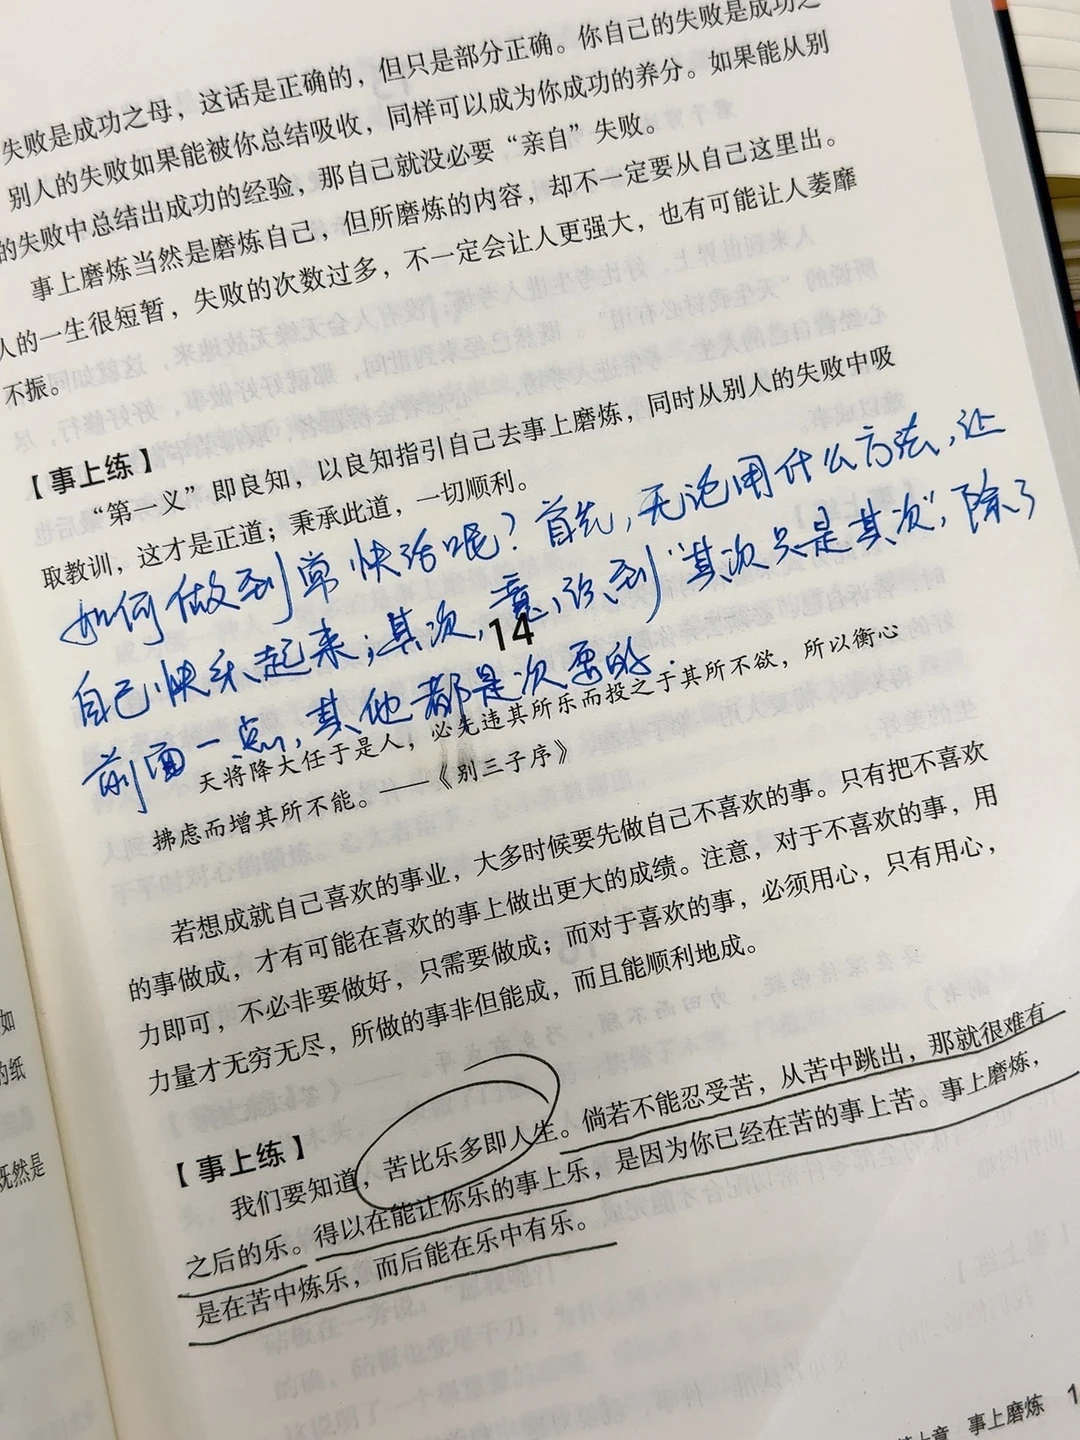 失败是成功之母，这话是正确的，但只是部分正确。你自己的失败是成功之
别人的失败如果能被你总结吸收，同样可以成为你成功的养分。如果能从别
的失败中总结出成功的经验，那自己就没必要“亲自”失败。
事上磨炼当然是磨炼自己，但所磨炼的内容，却不一定要从自己这里出。
人的一生很短暂，失败的次数过多，不一定会让人更强大，也有可能让人萎靡
不振。
【事上练】
“第一义”即良知，以良知指引自己去事上磨炼，同时从别人的失败中吸
取教训，这才是正道；秉承此道，一切顺利。
如何做到常快活呢？首先，无论用什么方法，让
自己快乐起来；其次，意识到“其次只是其次”，除了
前面一点，其他都是次要的．
14
天将降大任于是人，必先违其所乐而投之于其所不欲，所以衡心
拂虑而增其所不能。——《别三子序》
若想成就自己喜欢的事业，大多时候要先做自己不喜欢的事。只有把不喜欢
的事做成，才有可能在喜欢的事上做出更大的成绩。注意，对于不喜欢的事，用
力即可，不必非要做好，只需要做成；而对于喜欢的事，必须用心，只有用心，
力量才无穷无尽，所做的事非但能成，而且能顺利地成。
【事上练】
我们要知道，苦比乐多即人生。倘若不能忍受苦，从苦中跳出，那就很难有
之后的乐。得以在能让你乐的事上乐，是因为你已经在苦的事上苦。事上磨炼，
是在苦中炼乐，而后能在乐中有乐。
如
的纸
既然是
章 事上磨炼 1